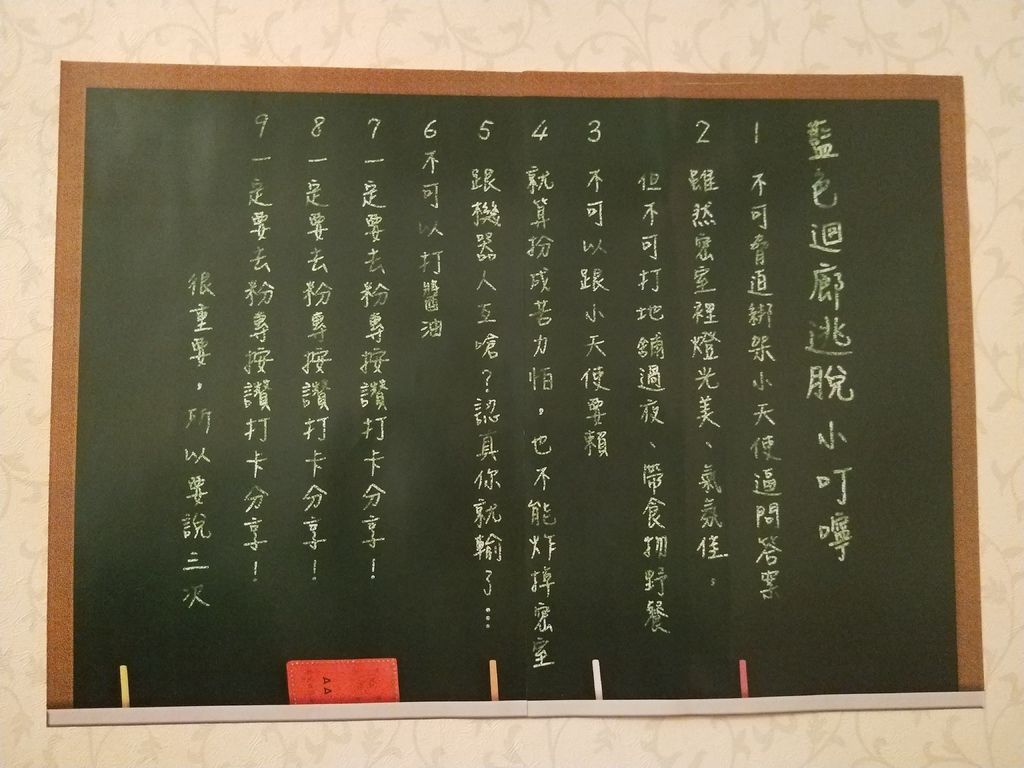 藍色迴廊逃脫小叮嚀
1 不可脅迫綁架小天使逼問答案
2 雖然密室裡燈光美、氣氛佳，
但不可打地鋪過夜、帶食物野餐
3 不可以跟小天使耍賴
4 就算扮成苦力怕，也不能炸掉密室
5 跟機器人互嗆？認真你就輸了…
6 不可以打醬油
7 一定要去粉專按讚打卡分享！
8 一定要去粉專按讚打卡分享！
9 一定要去粉專按讚打卡分享！
很重要，所以要說三次
AA